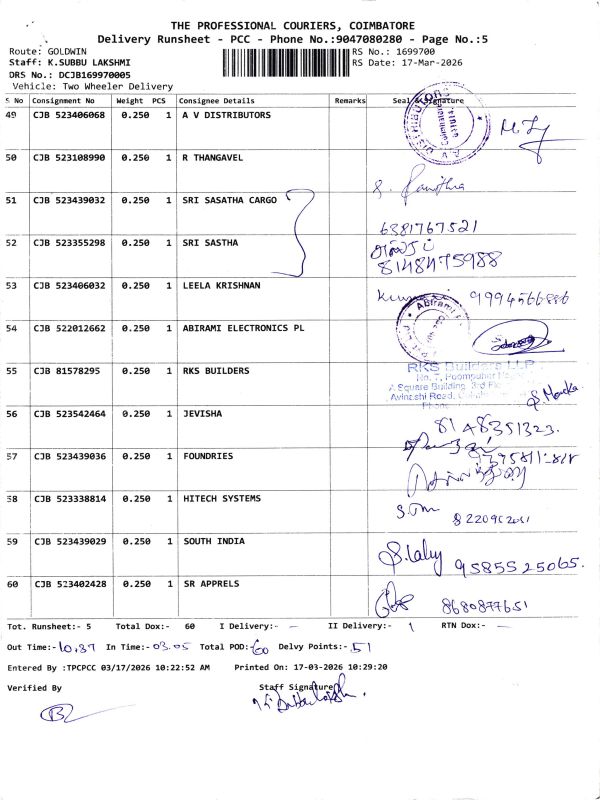 THE PROFESSIONAL COURIERS, COIMBATORE
Delivery Runsheet - PCC - Phone No.:9047080280 - Page No.:5
Route: GOLDWIN RS No.: 1699700
Staff: K.SUBBU LAKSHMI RS Date: 17-Mar-2026
DRS No.: DCJB169970005
Vehicle: Two Wheeler Delivery
S No Consignment No Weight PCS Consignee Details Remarks Seal & Signature
49 CJB 523406068 0.250 1 A V DISTRIBUTORS
50 CJB 523108990 0.250 1 R THANGAVEL
51 CJB 523439032 0.250 1 SRI SASATHA CARGO
6381767521
52 CJB 523355298 0.250 1 SRI SASTHA
8148475988
53 CJB 523406032 0.250 1 LEELA KRISHNAN
9994566886
54 CJB 522012662 0.250 1 ABIRAMI ELECTRONICS PL
55 CJB 81578295 0.250 1 RKS BUILDERS
RKS Builders LLP
A Square Building, 3rd
Avinashi Road,
56 CJB 523542464 0.250 1 JEVISHA
8148351323.
57 CJB 523439036 0.250 1 FOUNDRIES
58 CJB 523338814 0.250 1 HITECH SYSTEMS
59 CJB 523439029 0.250 1 SOUTH INDIA
9585525065.
60 CJB 523402428 0.250 1 SR APPRELS
8680877651
Tot. Runsheet:- 5 Total Dox:- 60 I Delivery:- - II Delivery:- 1 RTN Dox:- -
Out Time:- 10.37 In Time:- 03.05 Total POD:- 60 Delvy Points:- 51
Entered By :TPCPCC 03/17/2026 10:22:52 AM Printed On: 17-03-2026 10:29:20
Verified By Staff Signature